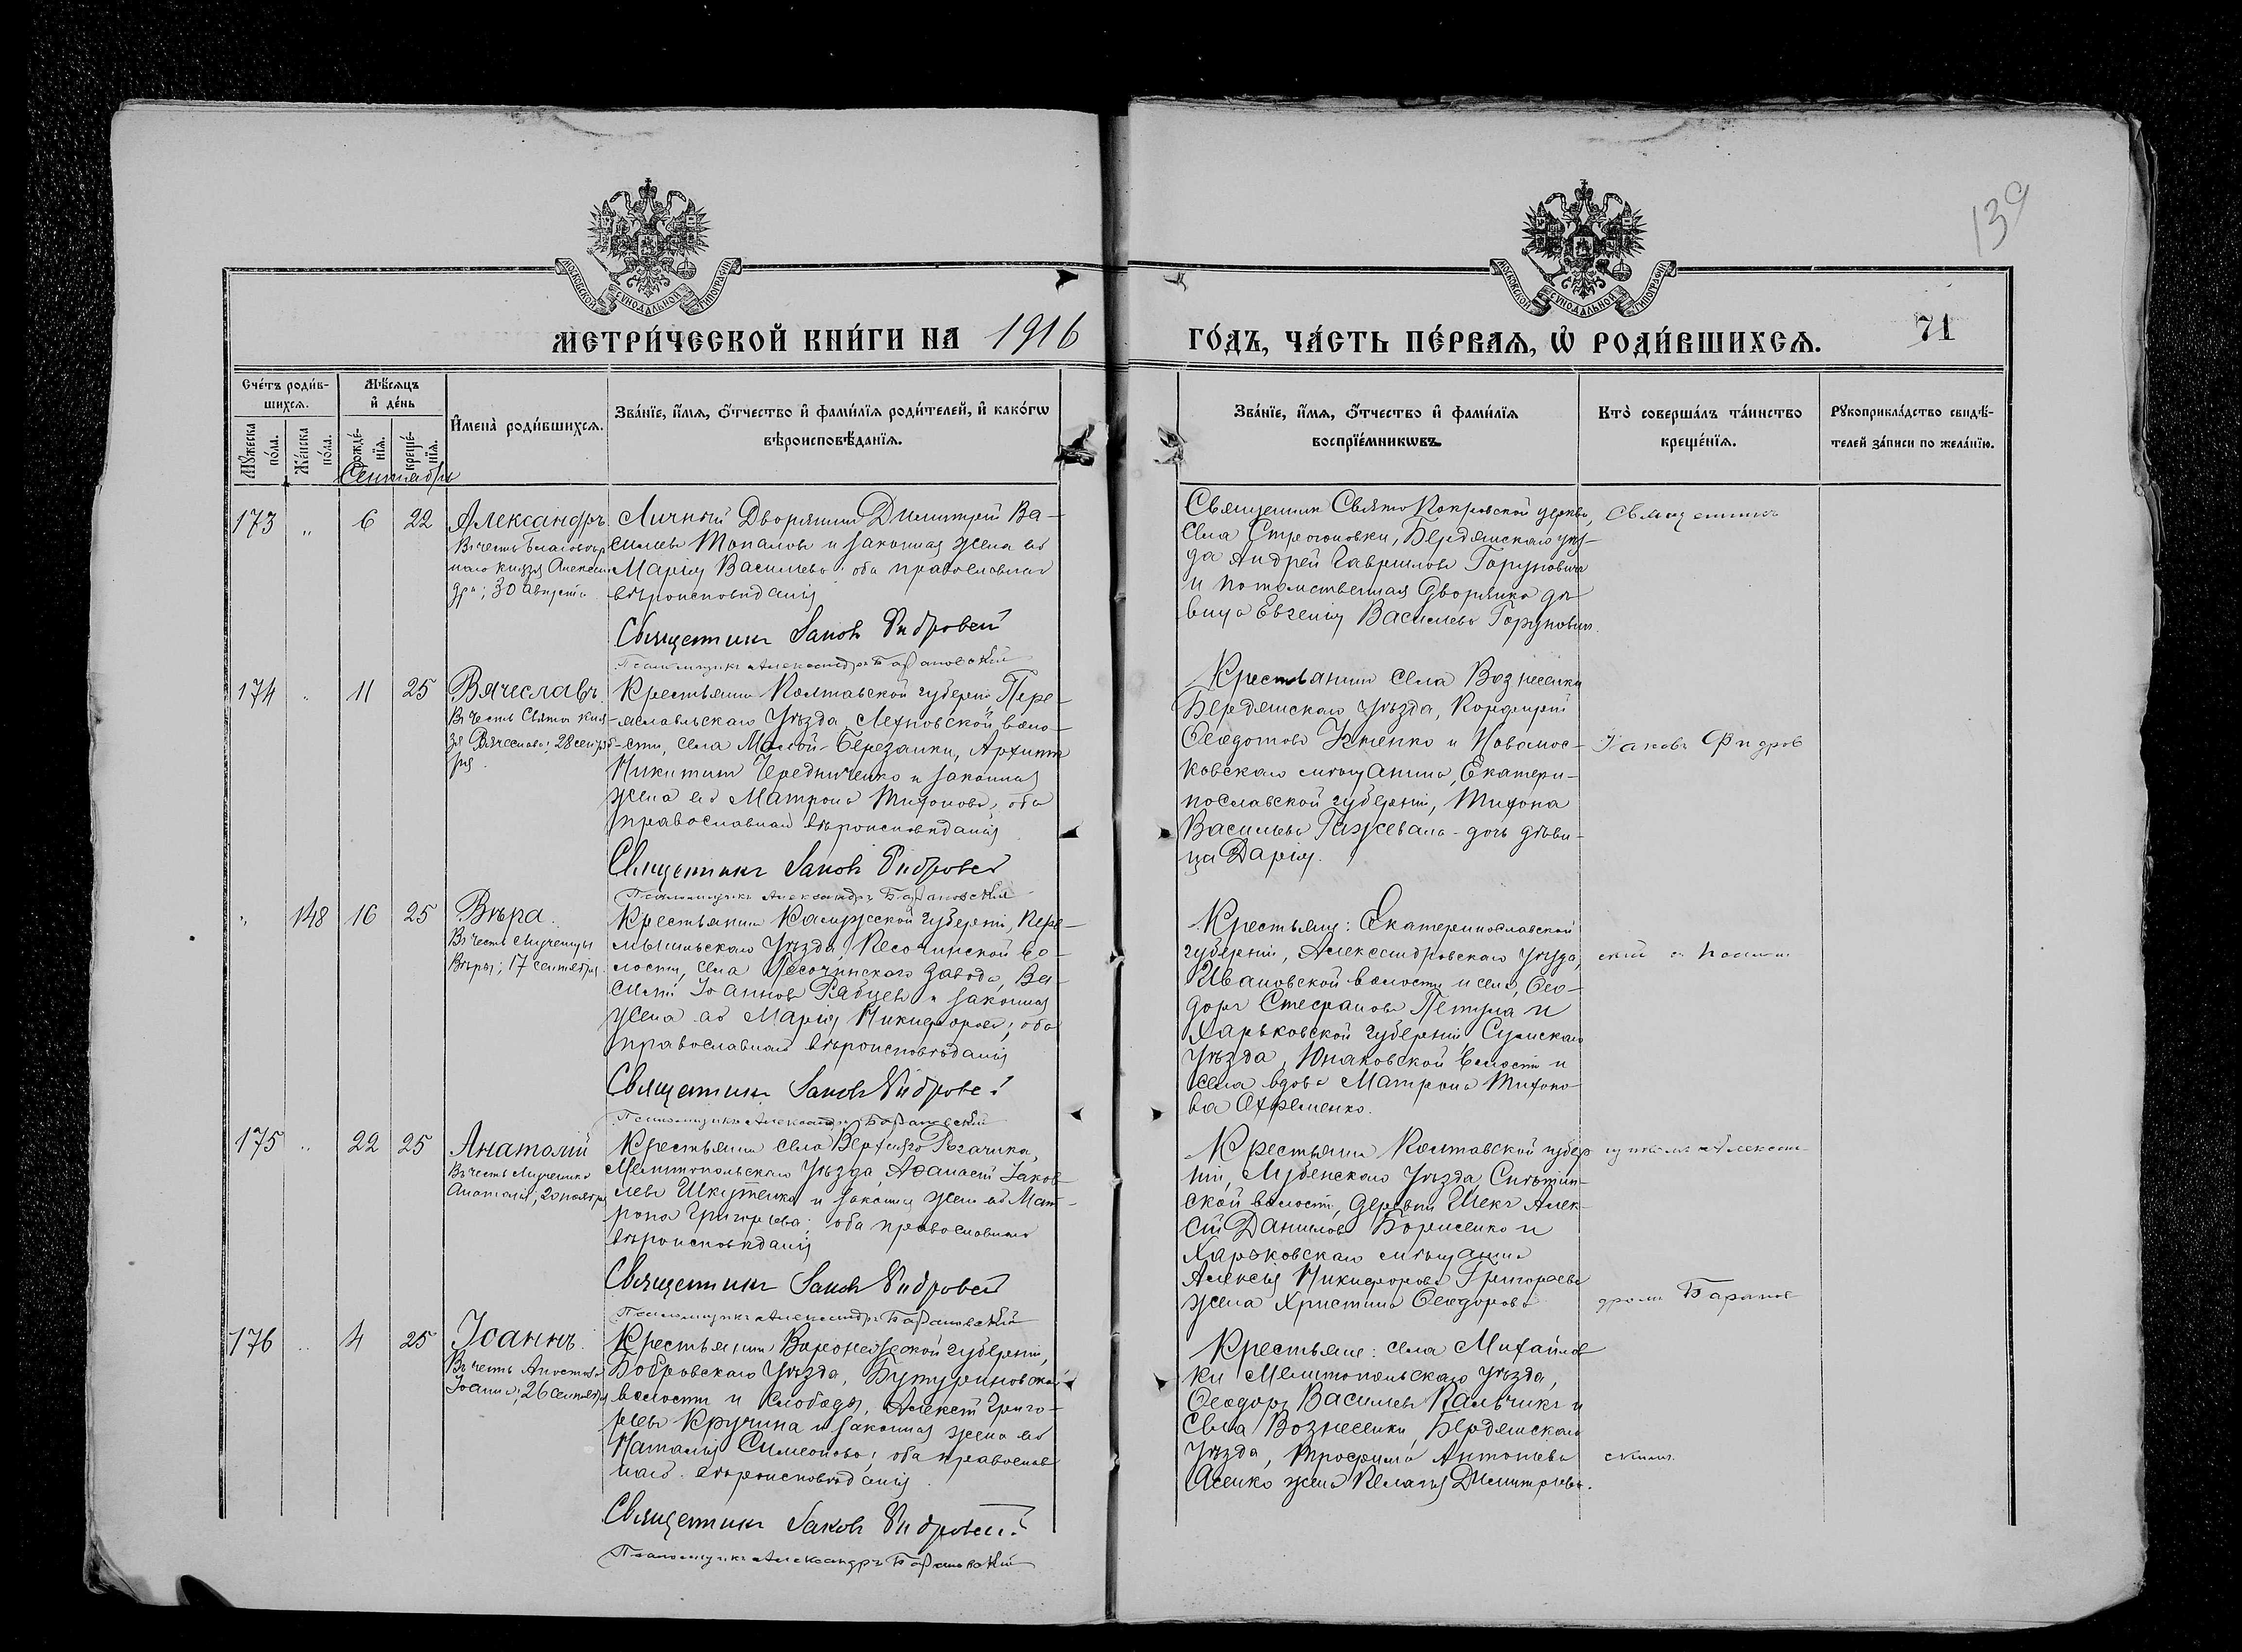 139
МОСКОВСКОЙ СѴНОДАЛЬНОЙ ТИПОГРАФІИ
МОСКОВСКОЙ СѴНОДАЛЬНОЙ ТИПОГРАФІИ
МЕТРИ́ЧЕСКОЙ КНИ́ГИ НА 1916
ГО́ДЪ, ЧА́СТЬ ПЕ́РВАѦ, Ѡ҆ РОДИ́ВШИХСѦ. 71
Сче́тъ роди́в-
шихсѧ.
Мꙋ́жеска
по́ла.
Же́нска
по́ла.
Мѣ́сѧцъ
и҆ де́нь
рожде́-
нїѧ.
креще́-
нїѧ.
Сентябрь
И҆мена̀ роди́вшихсѧ.
Зва́нїе, и҆́мѧ, ѻ҆́тчество и҆ фами́лїѧ роди́телей, и҆ како́гѡ
вѣроисповѣ́данїѧ.
Зва́нїе, и҆́мѧ, ѻ҆́тчество и҆ фами́лїѧ
воспрїе́мникѡвъ
Кто̀ соверша́лъ та́инство
креще́нїѧ.
Рꙋкоприкла́дство свидѣ́-
телей за́писи по жела́нїю.
173 „ 6 22
Александръ
Въ честь Благовѣр
наго князя Алексан
дра; 30 Августа
Личный Дворянинъ Димитрій Ва-
сильевъ Топаловъ и законная жена его
Марія Васильева; оба православнаго
вѣроисповѣданія
Священникъ Іаковъ
Псаломщикъ Александръ Барановскій
Священникъ Свято Покровской церкви,
села Строгоновки, Бердянскаго уѣз-
да Андрей Гавриловъ Горуновичъ
и потомственная дворянка дѣ-
вица Евгенія Васильева Горунович.
Священникъ
174 „ 11 25
Вячеславъ
Въ честь Свята кня-
зя Вячеслава; 28 сентяб
ря
Крестьянинъ Полтавской губерніи Пере-
яславльскаго Уѣзда, воло-
сти, села Малой-Березанки, Архипъ
Никитинъ Чередниченко и законная
жена его Матрона Тихонова; оба
православнаго вѣроисповѣданія
Священникъ Іаковъ
Псаломщикъ Александръ Барановскій
Крестьянинъ села Вознесенки
Бердянскаго Уѣзда, Кондратій
Ѳеодотовъ и Новомос-
ковскаго мѣщанина, Екатери-
нославской губерніи, Тихона
Васильева дочь дѣви-
ца Дарія.
Іаковъ Фидров
„ 148 16 25
Вѣра.
Въ честь мученицы
Вѣры; 17 сентября.
Крестьянинъ Калужской губерніи, Пере-
мышльскаго Уѣзда, Песочинской во-
лости, села Песочинскаго завода, Ва-
силій Іоанновъ Рябцевъ и законная
жена его Марія Никифорова; оба
православнаго вѣроисповѣданія
Священникъ Іаковъ
Псаломщикъ Александръ Барановскій
Крестьяне: Екатеринославской
губерніи, Александровскаго Уѣзда,
Ивановской волости и села, Ѳео-
доръ Стефановъ и
Харьковской губерніи Сумскаго
Уѣзда, Юнаковской волости и
села вдова Матрона Тихоно-
ва
скій съ
175 „ 22 25
Анатолій
Въ честь Мученика
Анатолія; 20 ноября
Крестьянинъ села Верхняго Рогачика,
Мелитопольскаго Уѣзда, Аѳанасій Іаков-
левъ Шкутенко и законная жена его Мат-
рона Григорьева; оба православнаго
вѣроисповѣданія
Священникъ Іаковъ
Псаломщикъ Александръ Барановскій
Крестьянинъ Полтавской губер-
ніи, Лубенскаго Уѣзда, Снѣтин-
ской волости, деревни Шекъ Алек-
сій Даниловъ Борисенко и
Харьковскаго мѣщанина
Алексія Никифорова Григорьева
жена Христина Ѳеодорова
щикомъ Алексан-
дромъ Баранов
176 „ 4 25
Іоаннъ.
Въ честь Апостола
Іоанна; 26 сентября
Крестьянинъ Воронежской губерніи,
Бобровскаго Уѣзда, Бутурлиновской
волости и слободы, Алексій Григо-
рьевъ Кручина и законная жена его
Наталія Симеонова; оба православ
наго вѣроисповѣданія
Священникъ Іаковъ
Псаломщикъ Александръ Барановскій
Крестьяне: села Михайлов
ки Мелитопольскаго Уѣзда,
Ѳеодоръ Васильевъ Пальчикъ и
села Вознесенки, Бердянскаго
Уѣзда, Трофима Антоньева
жена Пелагія Димитріева.
скимъ.